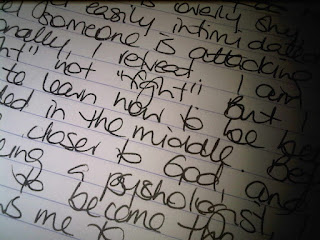 lovely shy
easily intimidated
someone is attacking
onally, I retreat. I am
ght" not "fight". But I
to learn how to be
ded in the middle. Be
closer to God, and
ing a psychologist,
to become this
s me to